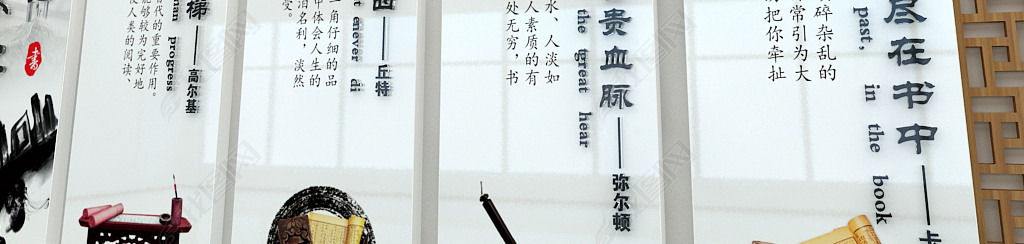 尽在书中——卡
past, in the book
碎杂乱的
常引为大
把你牵扯
贵血脉——弥尔顿
the great hear
水、人淡如
人素质的有
处无穷，书
——丘特
enever di
一角仔细的品
中体会人生的
泊名利，淡然
受。
梯——高尔基
man progress
代的重要作用。
能够较为完好地
人类的阅读、
書